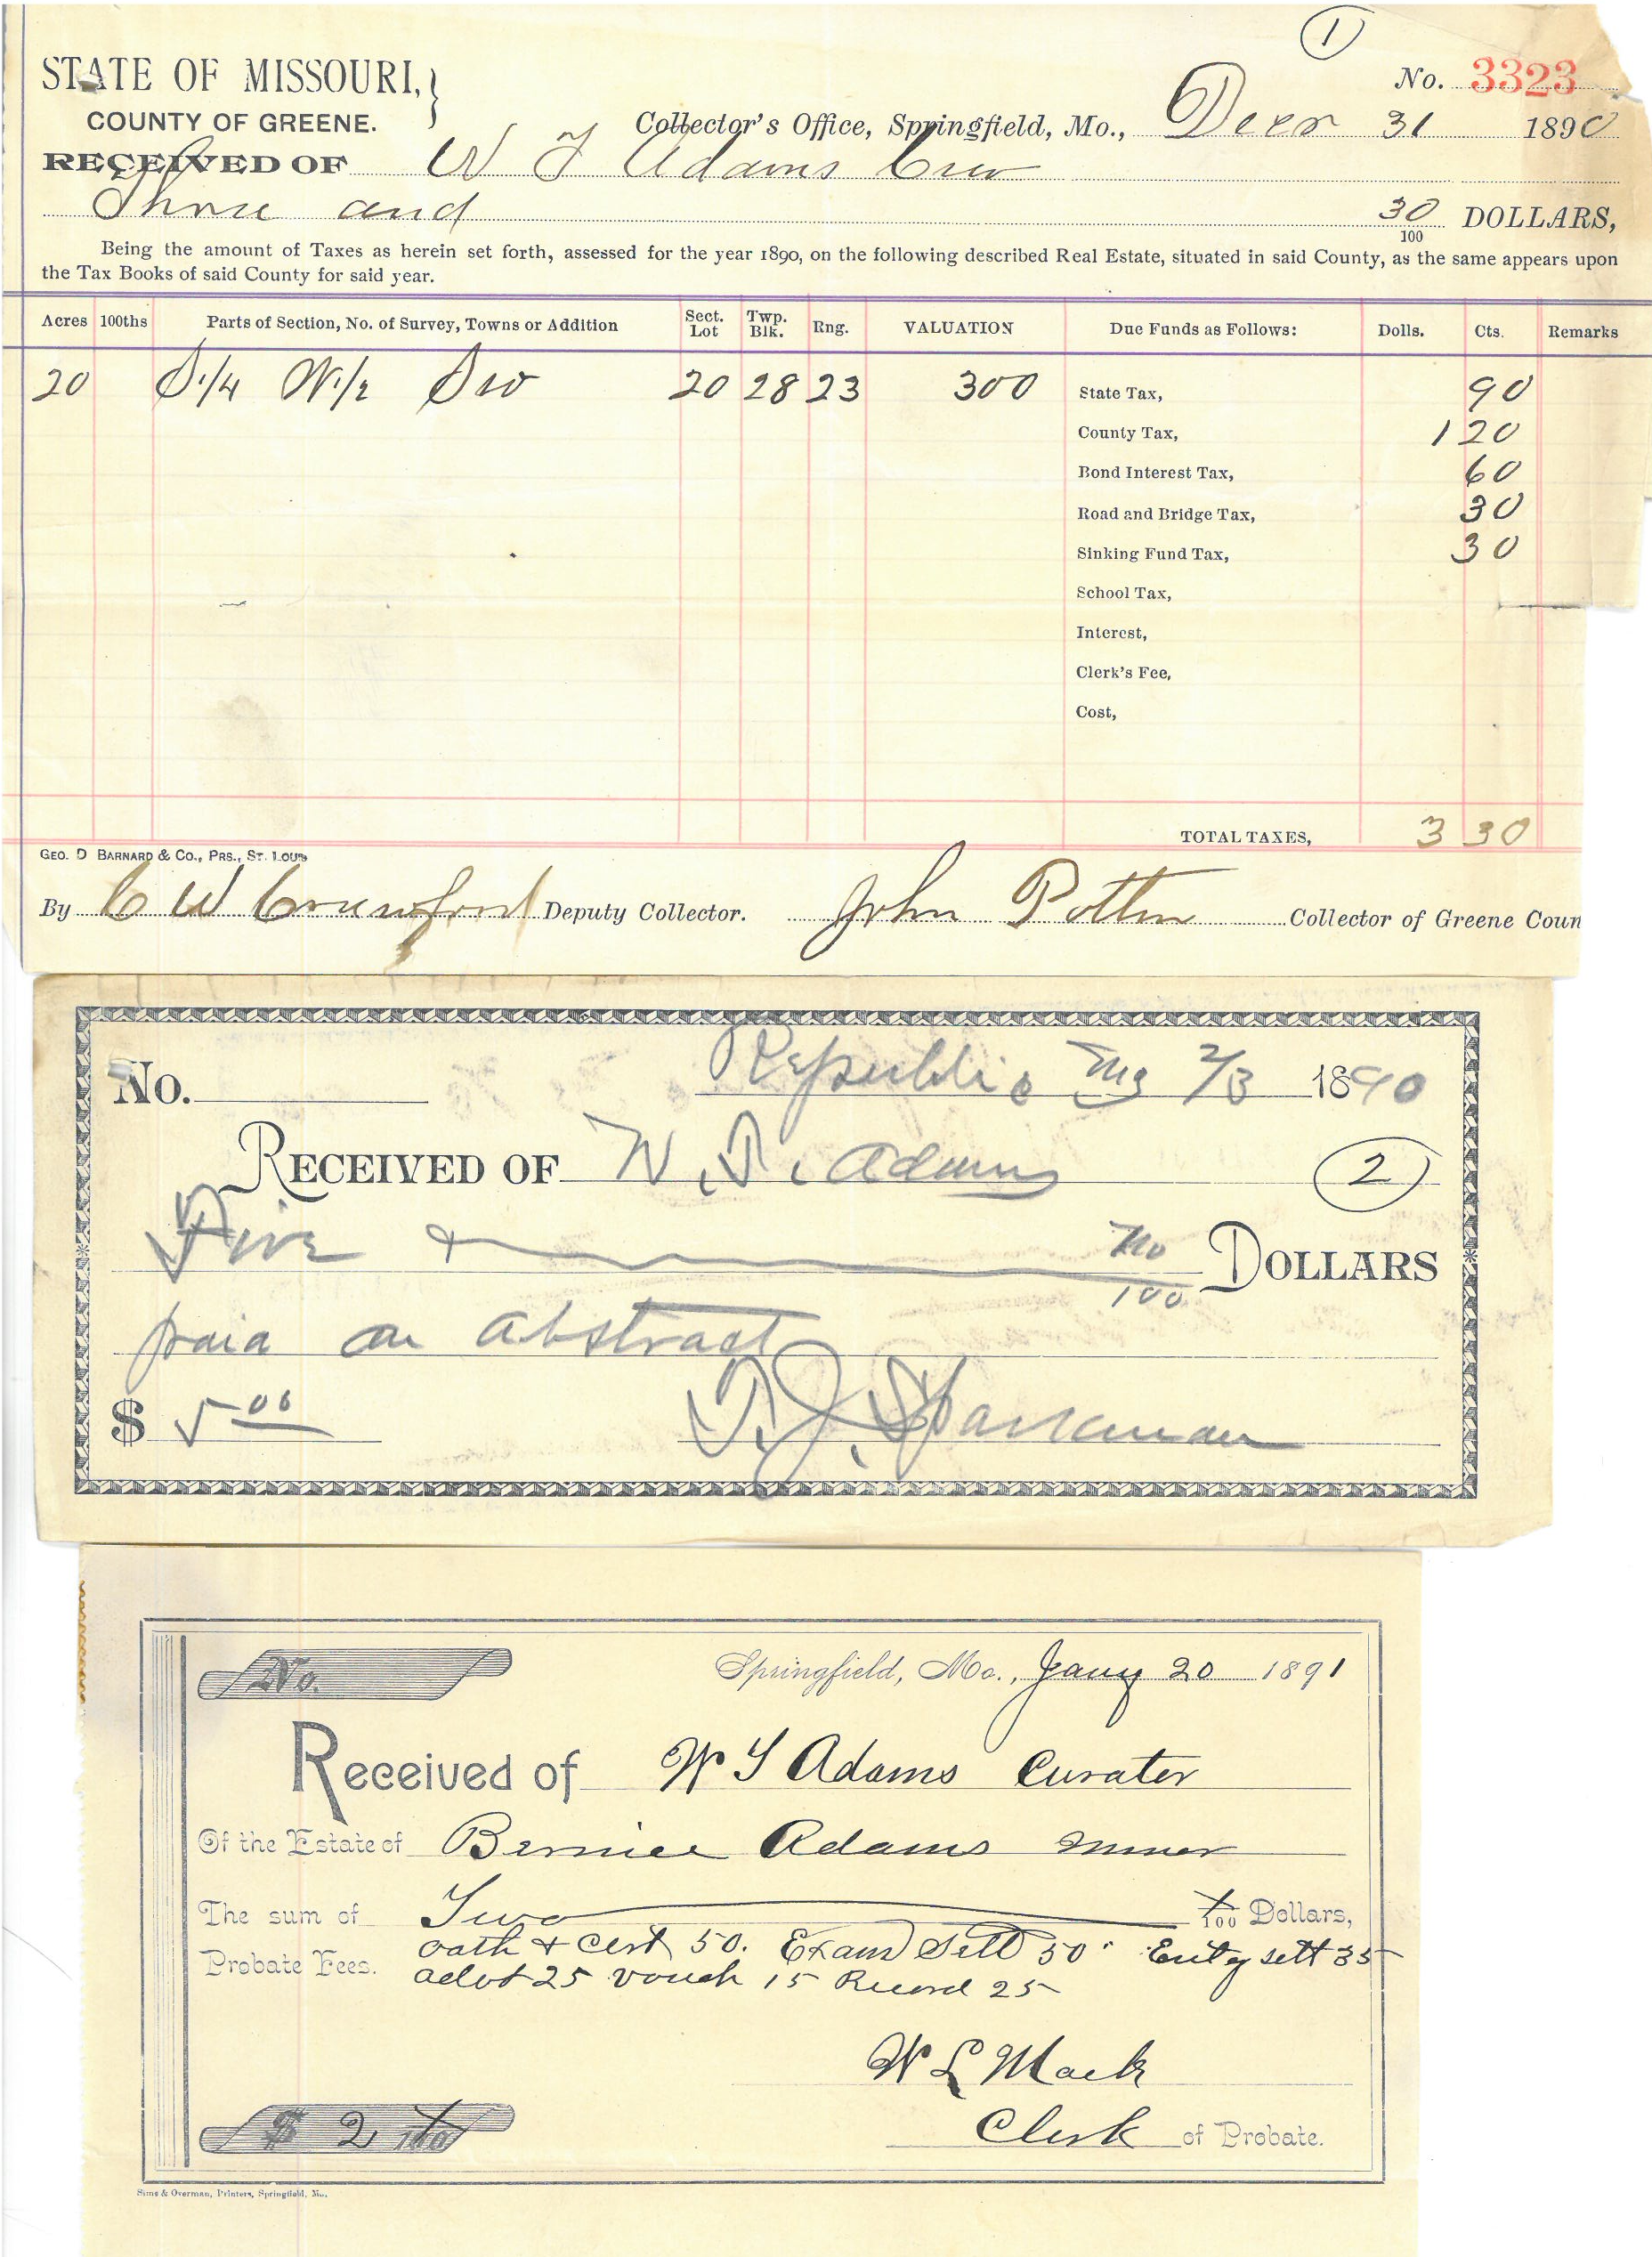 1
STATE OF MISSOURI,
COUNTY OF GREENE.
No. 3323
Collector's Office, Springfield, Mo., Decr 31 1890
RECEIVED OF W T Adams Cur
Three and 30/100 DOLLARS,
Being the amount of Taxes as herein set forth, assessed for the year 1890, on the following described Real Estate, situated in said County, as the same appears upon
the Tax Books of said County for said year.
Acres 100ths Parts of Section, No. of Survey, Towns or Addition Sect. Lot Twp. Blk. Rng. VALUATION Due Funds as Follows: Dolls. Cts. Remarks
20 S 1/4 W 1/2 SW 20 28 23 300 State Tax, 90
County Tax, 1 20
Bond Interest Tax, 60
Road and Bridge Tax, 30
Sinking Fund Tax, 30
School Tax,
Interest,
Clerk's Fee,
Cost,
TOTAL TAXES, 3 30
GEO. D BARNARD & CO., PRS., ST. LOUIS
By C W Crawford Deputy Collector. John Potter Collector of Greene Coun
Republic Mo 2/3 1890
No.
RECEIVED OF W. T. Adams
2
Five & no/100 DOLLARS
paid on abstract
$ 5 00
T. J. Sparkman
No.
Springfield, Mo., Jany 20 1891
Received of W T Adams Curator
Of the Estate of Bernice Adams minor
The sum of Two x/100 Dollars,
Probate Fees. oath & cert 50. Exam Sett 50. Entg sett 35
advt 25 vouch 15 Record 25
W L Mack
$ 2 x/100
Clerk of Probate.
Sims & Overman, Printers, Springfield, Mo.